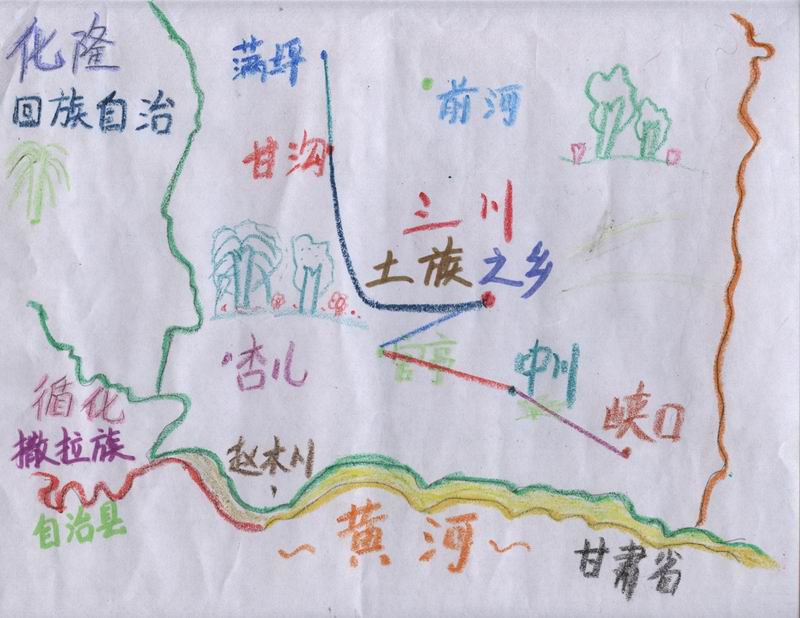 化隆
回族自治
满坪
前河
甘沟
三川
土族之乡
杏儿
官亭
中川
峡口
循化
撒拉族
自治县
赵木川
~黄河~
甘肃省